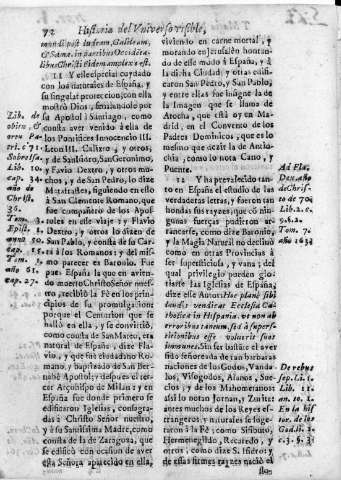 72 Historia del Universo visible,
mundi post Iudæam, Galilæam,
& Samariam, in partibus Occidẽta-
libus Christi fidem amplexæ est.
11 Y este especial cuydado
con los naturales de España, y
su singular proteccion, con ella
mostrò Dios, embiandole por
su Apostol à Santiago, como
consta aver venido à ella de
los Pontifices Innocencio III.
Leon III. Calixto, y otros,
y de San Isidro, San Geronimo,
y Flavio Dextro, y otros mu-
chos, y de San Pedro, lo dize
Matafrastes, siguiendo en esto
à San Clemente Romano, que
fue compañero de los Apos-
toles en este viaje y Flavio
Dextro, y otros lo dizen de
San Pablo, y consta de su Car-
ta à los Romanos; y del mis-
mo parecer es Baronio. Fue
pues España la que en avien-
do muerto Christo Señor nues-
tro, recibiò la Fè en los prin-
cipios de su promulgacion,
porque el Centurion que se
hallò en ella, y se convirtiò,
como consta de San Marcos, era
natural de España; dize Fla-
vio, y que fue ciudadano Ro-
mano, y baptizado de San Ber-
nabè Apostol; y despues el ter-
cer Arçobispo de Milan: y en
España fue donde primero se
edificaron Iglesias, consagra-
das à Christo Señor nuestro,
y à su Santissima Madre, como
consta de la de Zaragoça, que
se edificò en ocasion de aver
esta Señora aparecido en ella,
viviendo en carne mortal, y
morando en Jerusalèn honran-
do de esse modo à España, y à
la dicha Ciudad, y otras edifica-
ron San Pedro, y San Pablo,
y entre ellas fue insigne la de
la Imagen que se llama de
Atocha, que està oy en Ma-
drid, en el Convento de los
Padres Dominicos, que es lo
mesmo que dezir la de Antio-
chia, como lo nota Cano, y
Puente.
12 Y ha prevalecido tan-
to en España el estudio de las
verdaderas letras, y fueron tan
hondas sus reyzes, que co nin-
gunas fuerças pudieron ar-
rancarse, como dize Baronio, y
la Magia Natural no declinò
como en otras Provincias à
ser supersticiosa, y vana; del
qual privilegio pueden glo-
riarse las Iglesias de España;
dize este Autor: Hoc planè sibi
laudis vendicat Ecclesia Ca-
tholica in Hispania, ut non ab
erroribus tantum, sed à super-
stitionibus esse voluerit suos
immunes. Sin ser bastante el aver
sido señoreada de tan barbaras
naciones de los Godos, Vanda-
los, Visogodos, Alanos, Sue-
vos, y de los Mahometanos
assi lo notan Jornan, y Zurita:
antes muchos de los Reyes es-
trangeros, y naturales se soge-
taron à la Fè; como Sisibuto,
Hermenegildo, Recaredo, y
otros; como dize S. Isidro; y
de estas firmes rayzes naciò el
Lib. de
cap. 34.
año de
Christo
3.
Epist.
año 61.
cap. 27.
Ad Fla.
Dex. año
de Chris-
to de 70;
Lib. 2. c.
Tom. 7.
año 1633
De rebus
Lib. 11.
an. 10. c.
En la his
tor. de los
c. 3. § 3;